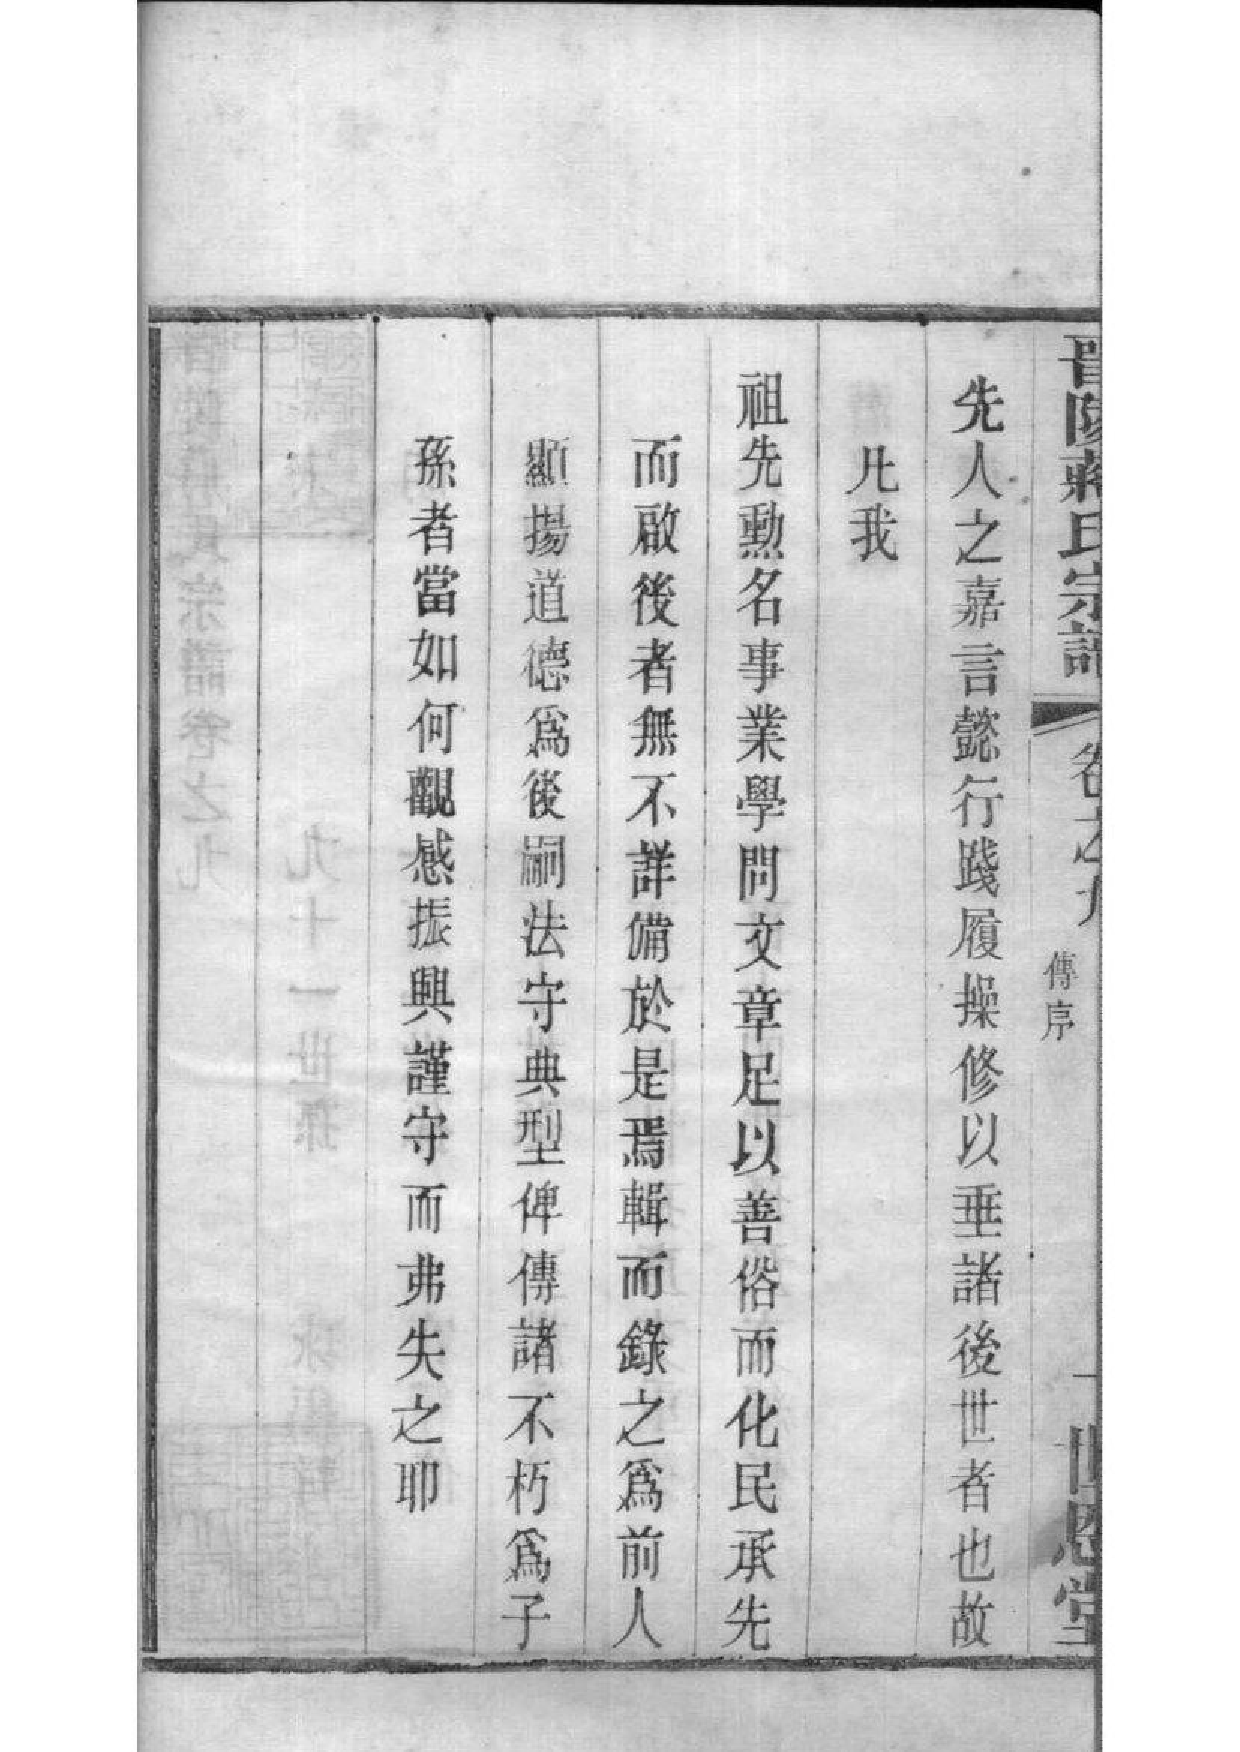 晉陵蔣氏宗譜
卷之九
傳序
一
世恩堂
先人之嘉言懿行踐履操修以垂諸後世者也故
凡我
祖先勳名事業學問文章足以善俗而化民承先
而啟後者無不詳備於是焉輯而錄之爲前人
顯揚道德爲後嗣法守典型俾傳諸不朽爲子
孫者當如何觀感振興謹守而弗失之耶